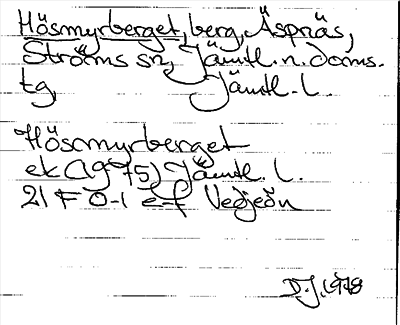 Hösmyrberget, berg, Äspnäs,
Ströms sn, Jämtl. n. doms.
tg, Jämtl. l.
Hösmyrberget
ek (1975) Jämtl. l.
21 F 0-1 e-f Vedjeön
D.J. 1978